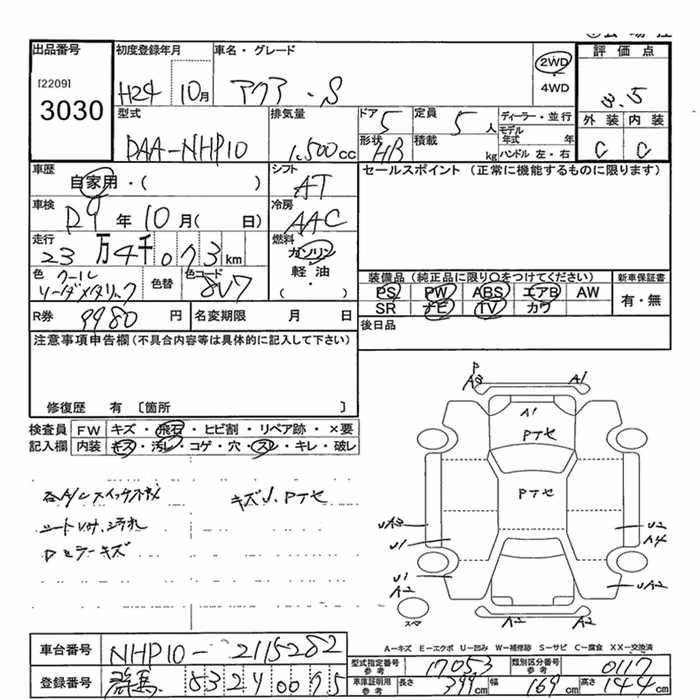 出品番号 初度登録年月 車名・グレード 評価点
[2209] 3030 H24 10月 アクア・S 2WD 4WD 3.5
型式 排気量 ドア 定員 ディーラー・並行 外装 内装
DAA-NHP10 1,500cc 5 5人 モデル年式 年 C C
形状 HB 積載 kg ハンドル 左・右
車歴 自家用・( ) シフト AT セールスポイント（正常に機能するものに限ります）
車検 R9年10月( 日) 冷房 AAC
走行 23万4千073km 燃料 ガソリン 軽油 ( ・ )
色 クールソーダメタリック 色替 色コード 8V7 装備品（純正品に限り○をつけてください） 新車保証書
PS PW ABS エアB AW 有・無
SR ナビ TV カワ
R券 9980円 名変期限 月 日 後日品
注意事項申告欄(不具合内容等は具体的に記入して下さい)
修復歴 有 〔箇所 〕
検査員 FW キズ・飛石・ヒビ割・リペア跡・×要
記入欄 内装 キズ・汚レ・コゲ・穴・スレ・キレ・破レ
キズU、Pアセ
シート 汚れ
Dミラーキズ
P
A3 A1
A1
Pアセ
Pアセ
UA3 U2
U1 A4
U1
A2 UA2
スペ A2 A2
A－キズ E－エクボ U－凹み W－補修跡 S－サビ C－腐食 XX－交換済
車台番号 NHP10-2115282 型式指定番号 参考 17053 類別区分番号 参考 0117
登録番号 群馬 532 400 75 車庫証明用 参考 長さ 399cm 幅 169cm 高さ 144cm